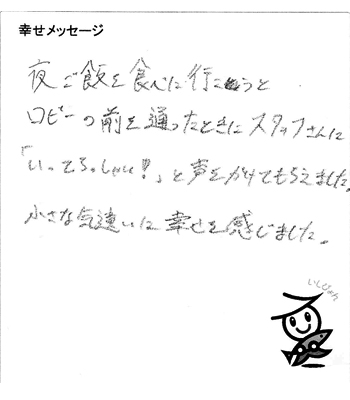 幸せメッセージ
夜ご飯を食べに行こうと
ロビーの前を通ったときにスタッフさんに
「いってらっしゃい!」と声をかけてもらえました。
小さな気遣いに幸せを感じました。